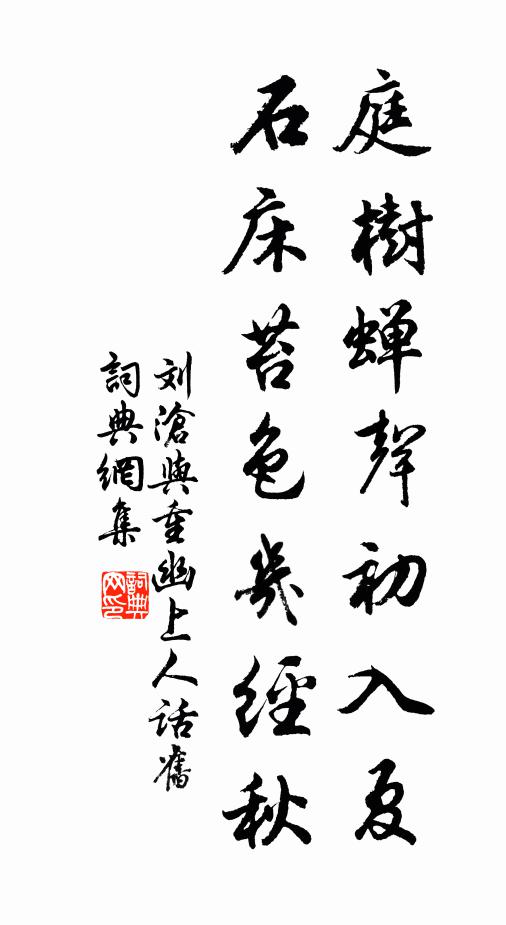 庭樹蝉聲初入夏
石床苔色幾經秋
刘滄與重幽上人話舊
詞典網集
詞典网印